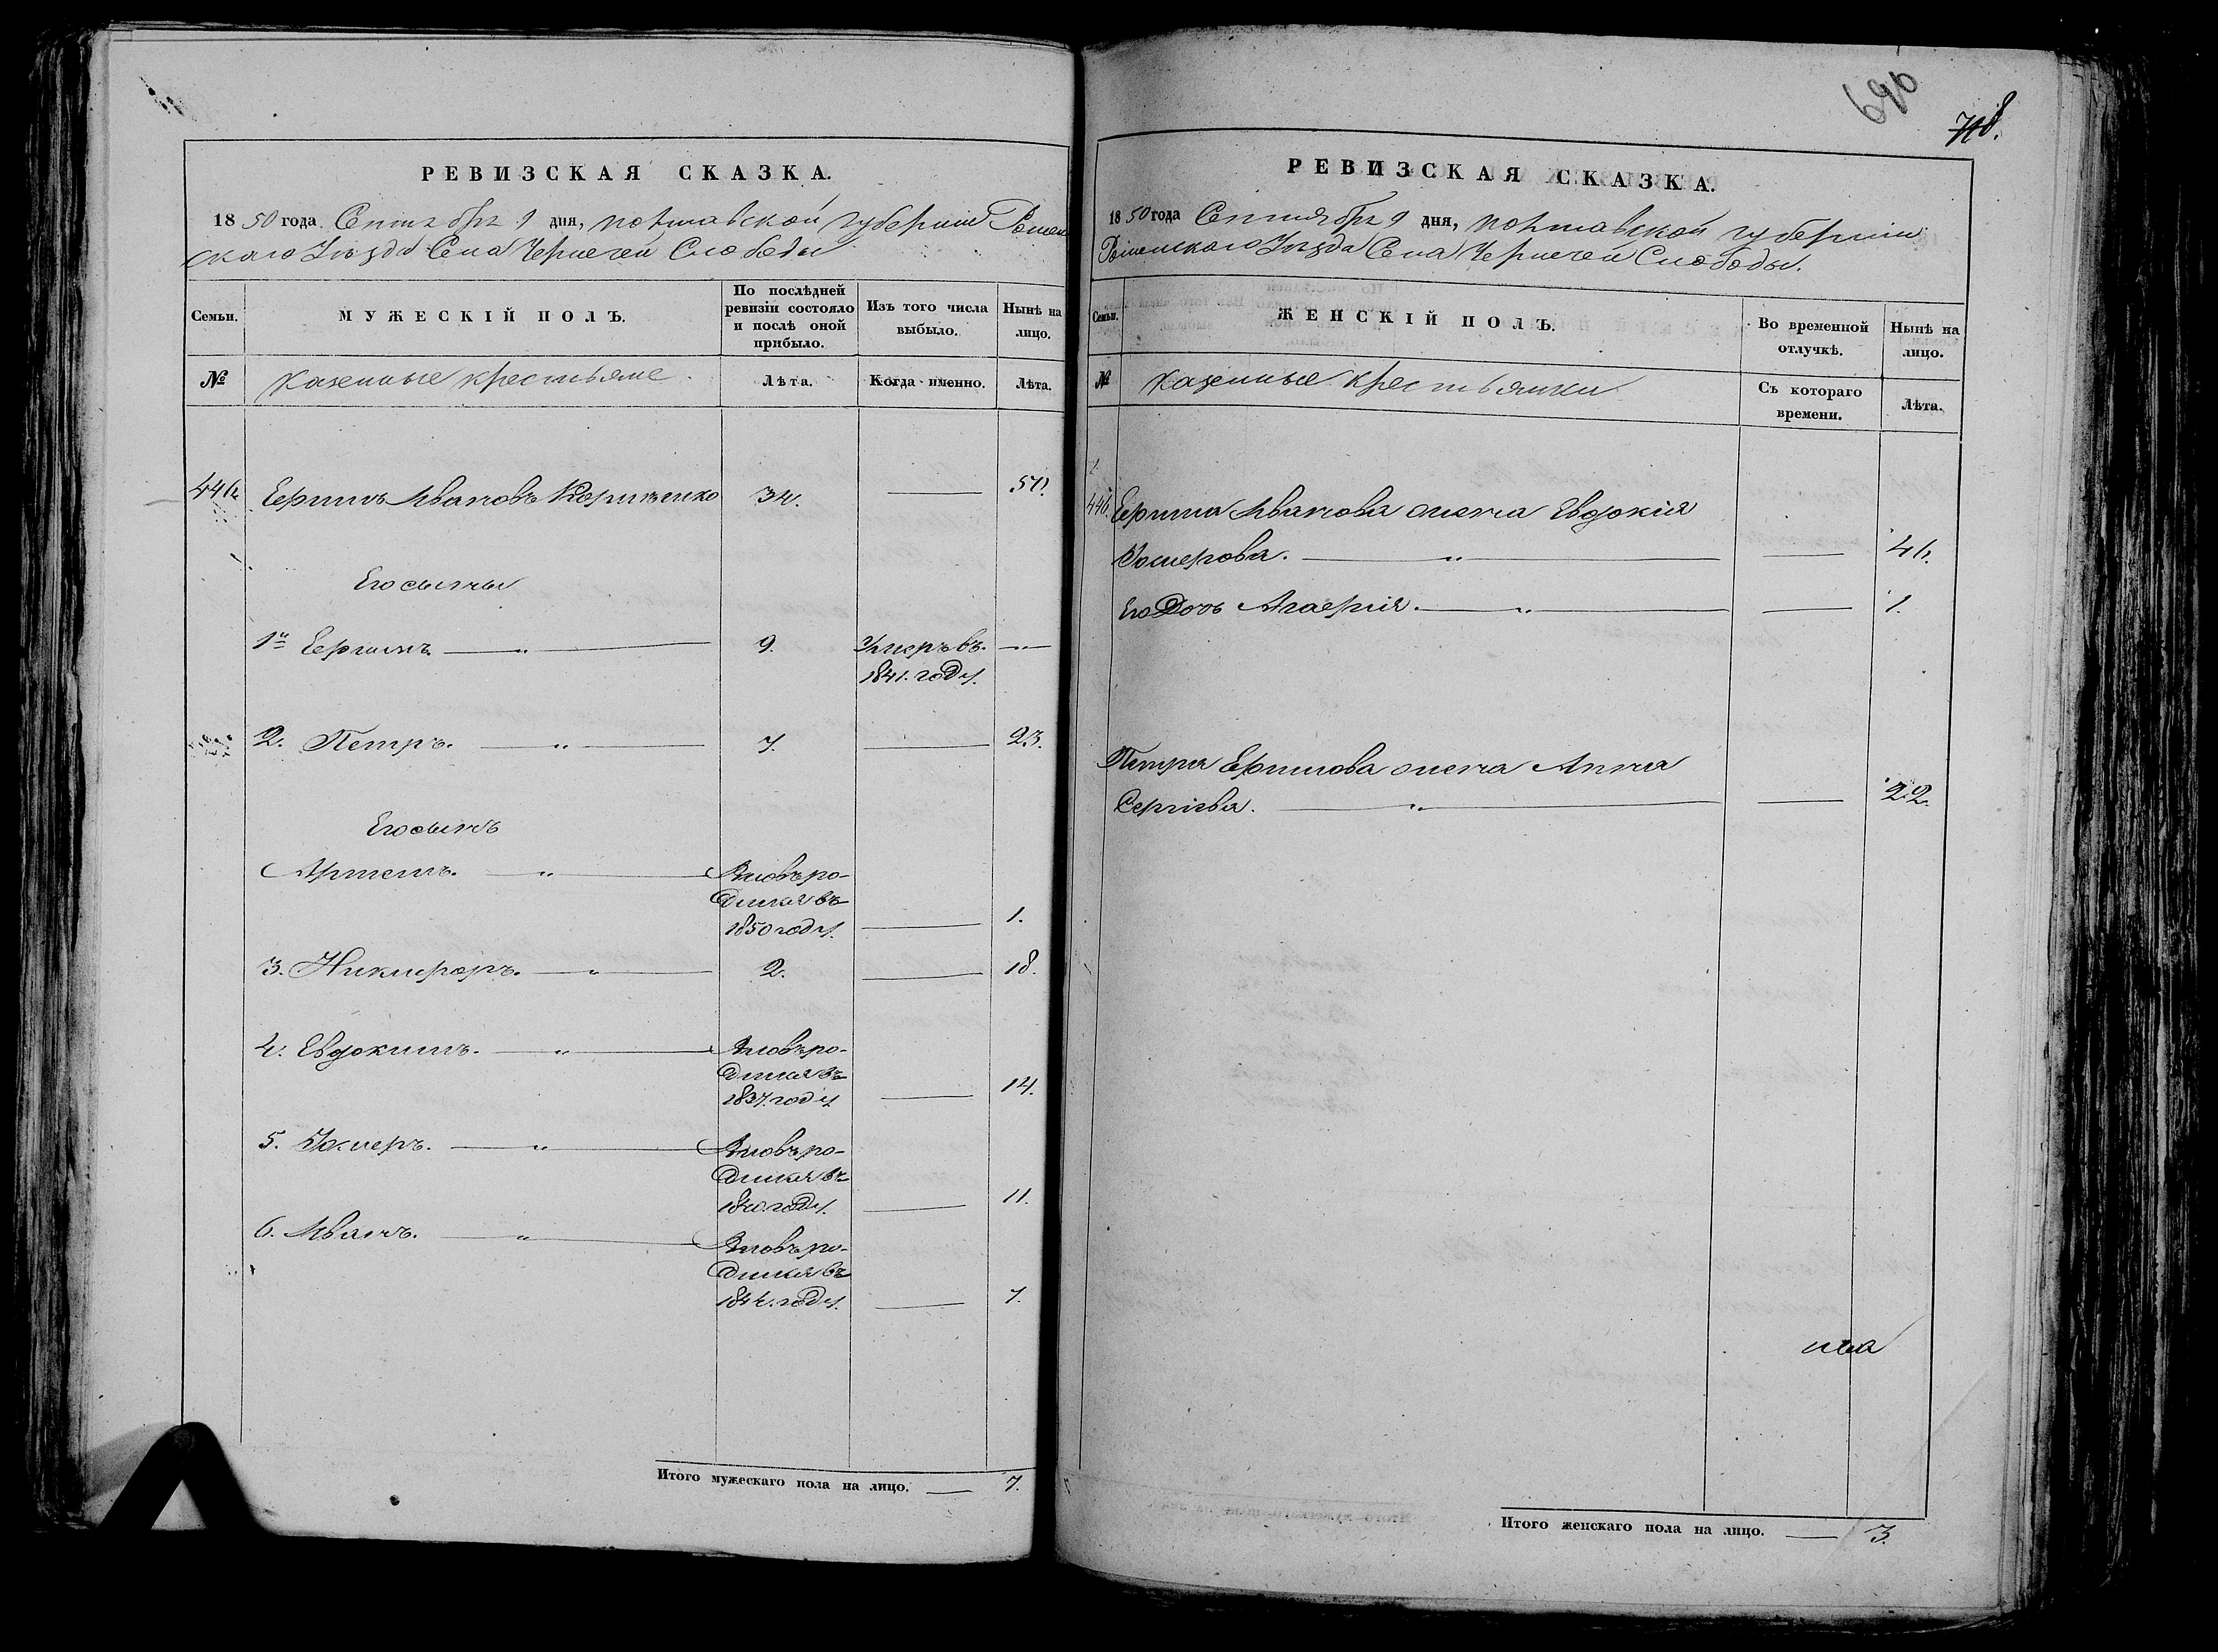 РЕВИЗСКАЯ СКАЗКА.
1850 года Сентября 9 дня, Полтавской губернии Ромен
скаго Уезда Села Чернечей Слободы
Семьи.
МУЖЕСКІЙ ПОЛЪ.
По послѣдней ревизіи состояло и послѣ оной прибыло.
Изъ того числа выбыло.
Нынѣ на лицо.
№
Казенные крестьяне
Лѣта.
Когда именно.
Лѣта.
446 Ефимъ Ивановъ 34. 50.
Его сыны
1й Ефимъ 9. Умеръ въ
1841. году.
2. Петръ. 7. 23.
Его сынъ
Артемъ. Вновь ро-
дился въ
1850 году. 1.
3. Никифоръ. 2. 18.
4. Евдокимъ. Вновь ро-
дился въ
1837. году 14.
5. Вновь ро-
дился въ
1840. году. 11.
6. Иванъ. Вновь ро-
дился въ
1844. году. 7.
Итого мужескаго пола на лицо. 7.
690
718.
РЕВИЗСКАЯ СКАЗКА.
1850 года Сентября 9 дня, Полтавской губернии
Роменскаго Уезда Села Чернечей Слободы.
Семьи.
ЖЕНСКІЙ ПОЛЪ.
Во временной отлучкѣ.
Нынѣ на лицо.
№
Казенные крестьянки
Съ котораго времени.
Лѣта.
446. Ефима Иванова жена Евдокія
46.
Его Дочь 1.
Петра Ефимова жена Анна
Сергіева. 22.
Итого женскаго пола на лицо. 3.